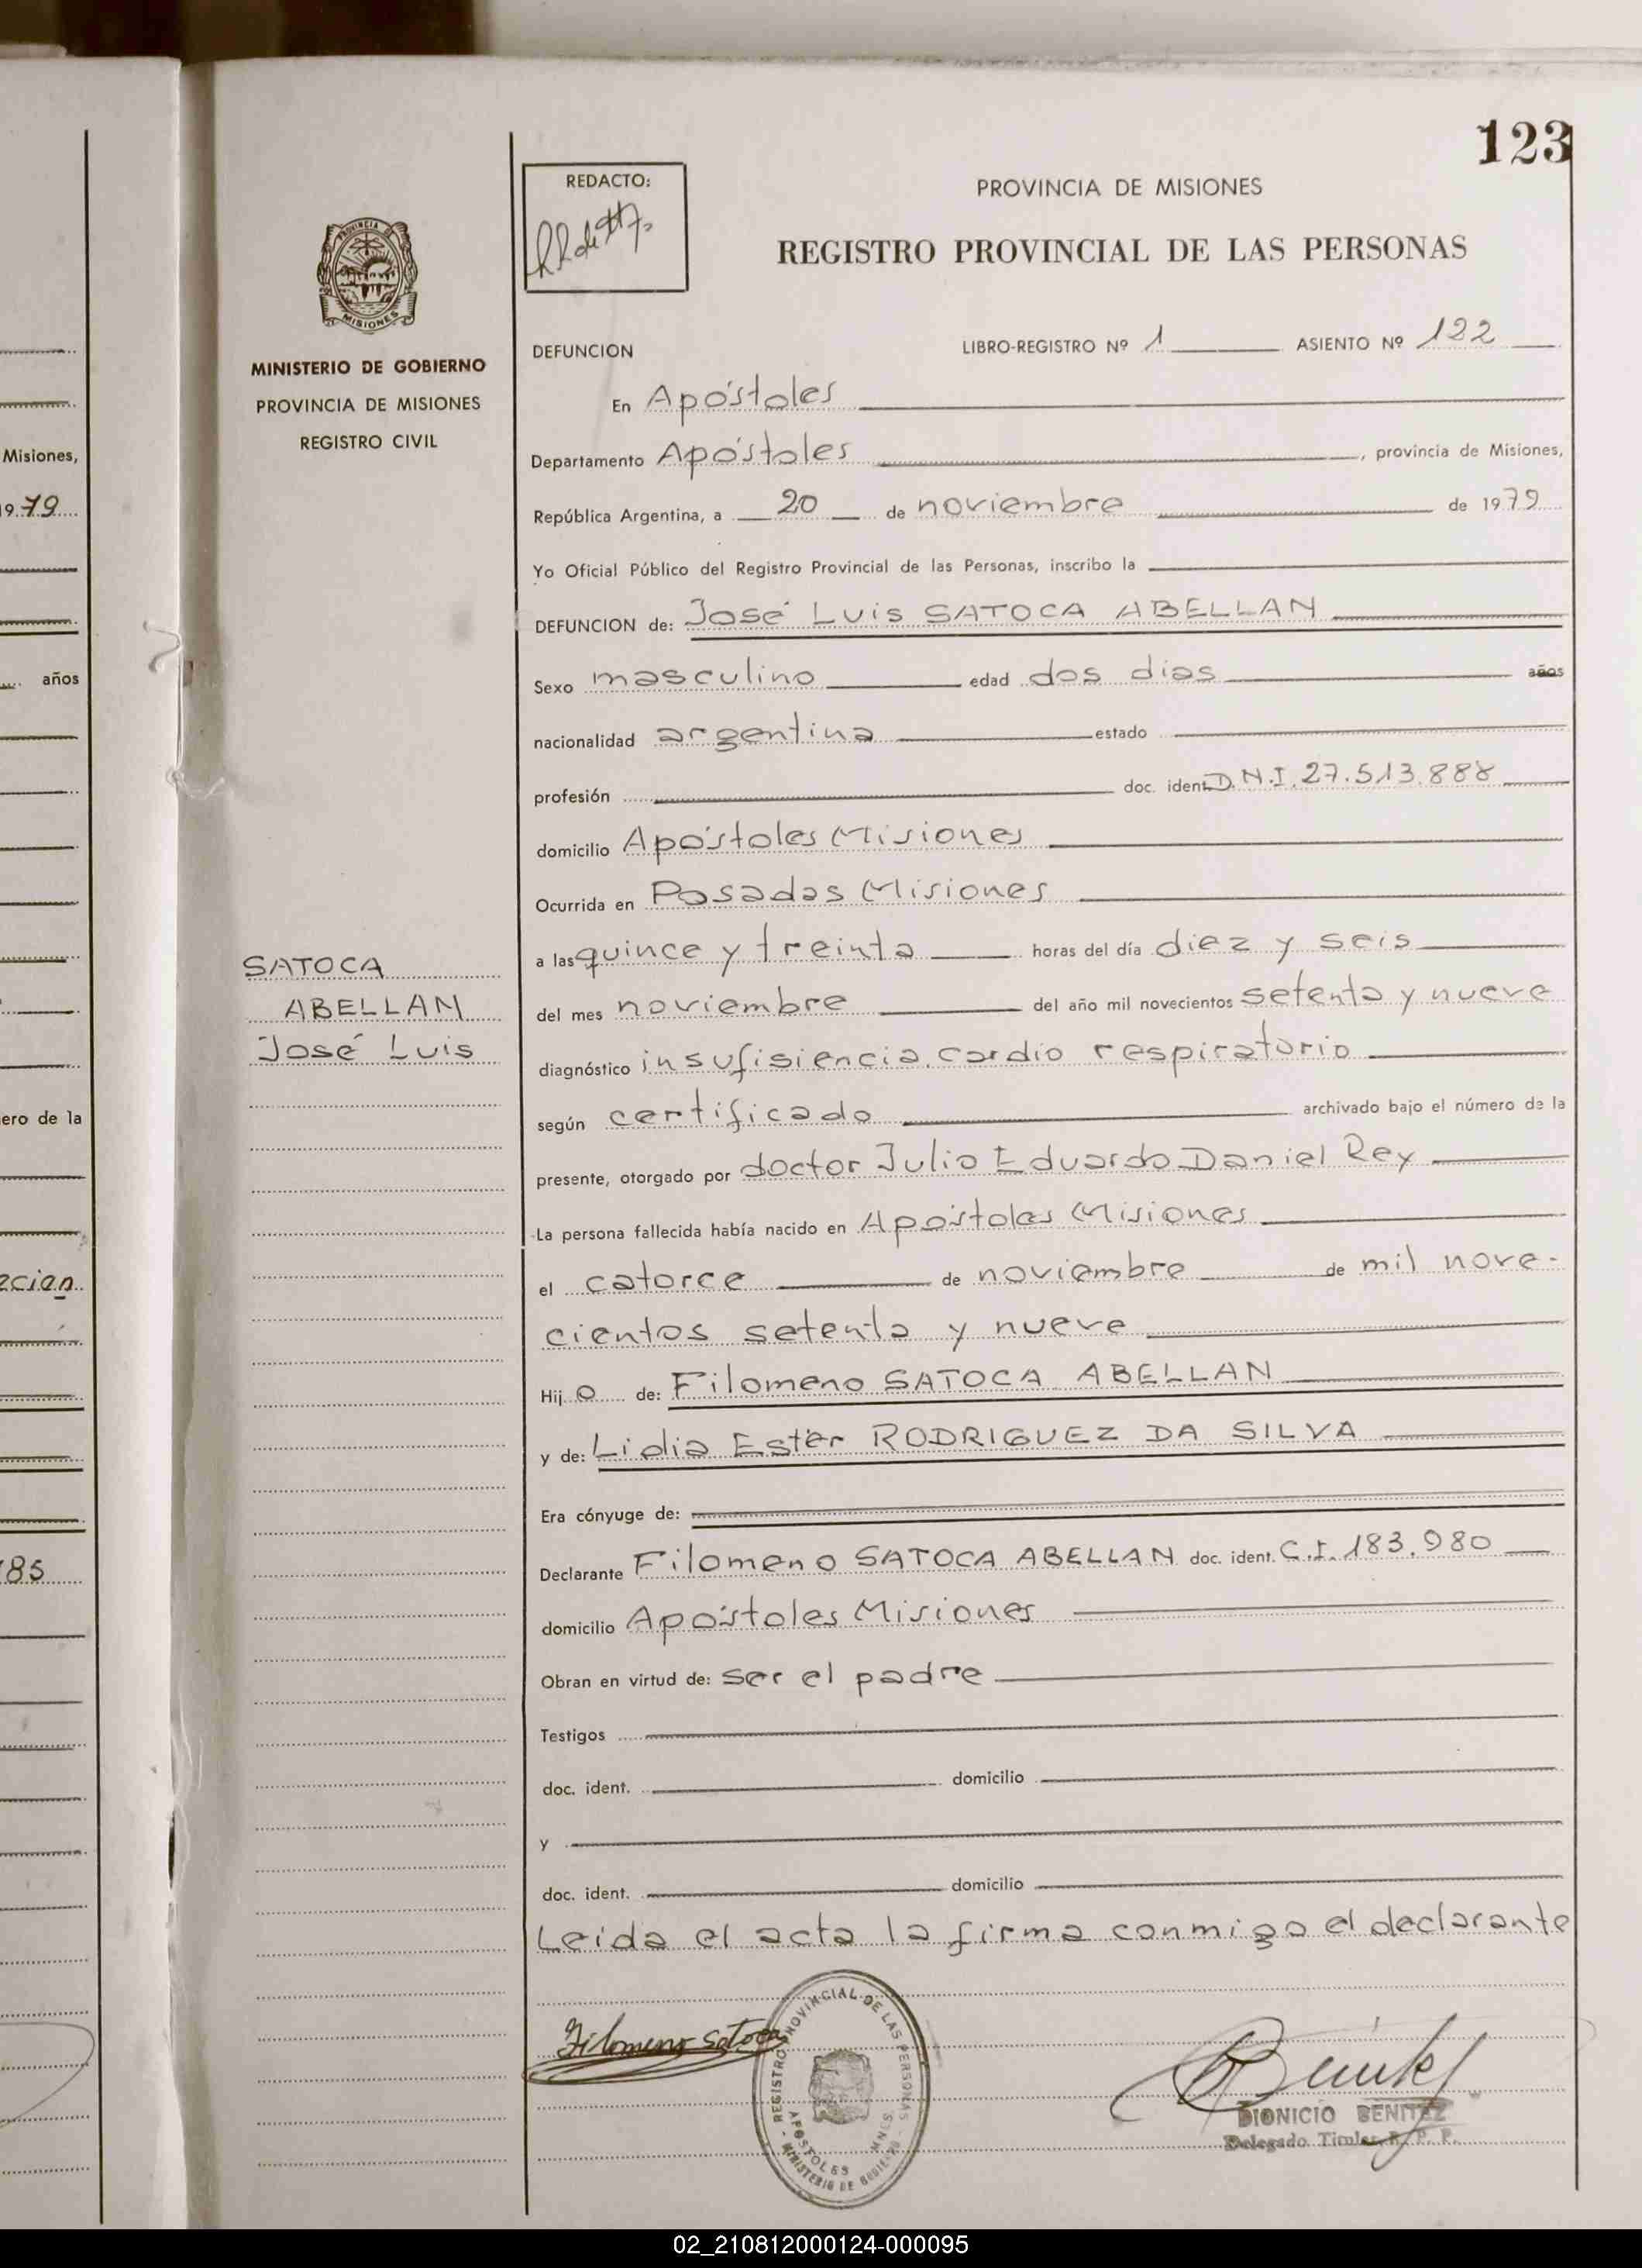 123
REDACTO:
PROVINCIA DE MISIONES
REGISTRO PROVINCIAL DE LAS PERSONAS
PROVINCIA DE
MISIONES
MINISTERIO DE GOBIERNO
PROVINCIA DE MISIONES
REGISTRO CIVIL
DEFUNCION LIBRO-REGISTRO Nº 1 ASIENTO Nº 122
En Apóstoles
Departamento Apóstoles, provincia de Misiones,
República Argentina, a 20 de noviembre de 1979
Yo Oficial Público del Registro Provincial de las Personas, inscribo la
DEFUNCION de: José Luis SATOCA ABELLAN
Sexo masculino edad dos dias años
nacionalidad argentina estado
profesión doc. ident. D.N.I. 27.513.888
domicilio Apóstoles Misiones
Ocurrida en Posadas Misiones
a las quince y treinta horas del día diez y seis
del mes noviembre del año mil novecientos setenta y nueve
diagnóstico insufisiencia cardio respiratorio
según certificado archivado bajo el número de la
presente, otorgado por doctor Julio Eduardo Daniel Rey
La persona fallecida había nacido en Apóstoles Misiones
el catorce de noviembre de mil nove-
cientos setenta y nueve
Hijo de: Filomeno SATOCA ABELLAN
y de: Lidia Ester RODRIGUEZ DA SILVA
Era cónyuge de:
Declarante Filomeno SATOCA ABELLAN doc. ident. C.I. 183.980
domicilio Apóstoles Misiones
Obran en virtud de: ser el padre
Testigos
doc. ident. domicilio
y
doc. ident. domicilio
Leida el acta la firma conmigo el declarante
SATOCA
ABELLAN
José Luis
Filomeno Satoca
REGISTRO PROVINCIAL DE LAS PERSONAS
APOSTOLES MNES.
MINISTERIO DE GOBIERNO
DIONICIO BENITEZ
Delegado Titular R. P. P.
Misiones,
1979
años
ero de la
ecien
185
02_210812000124-000095